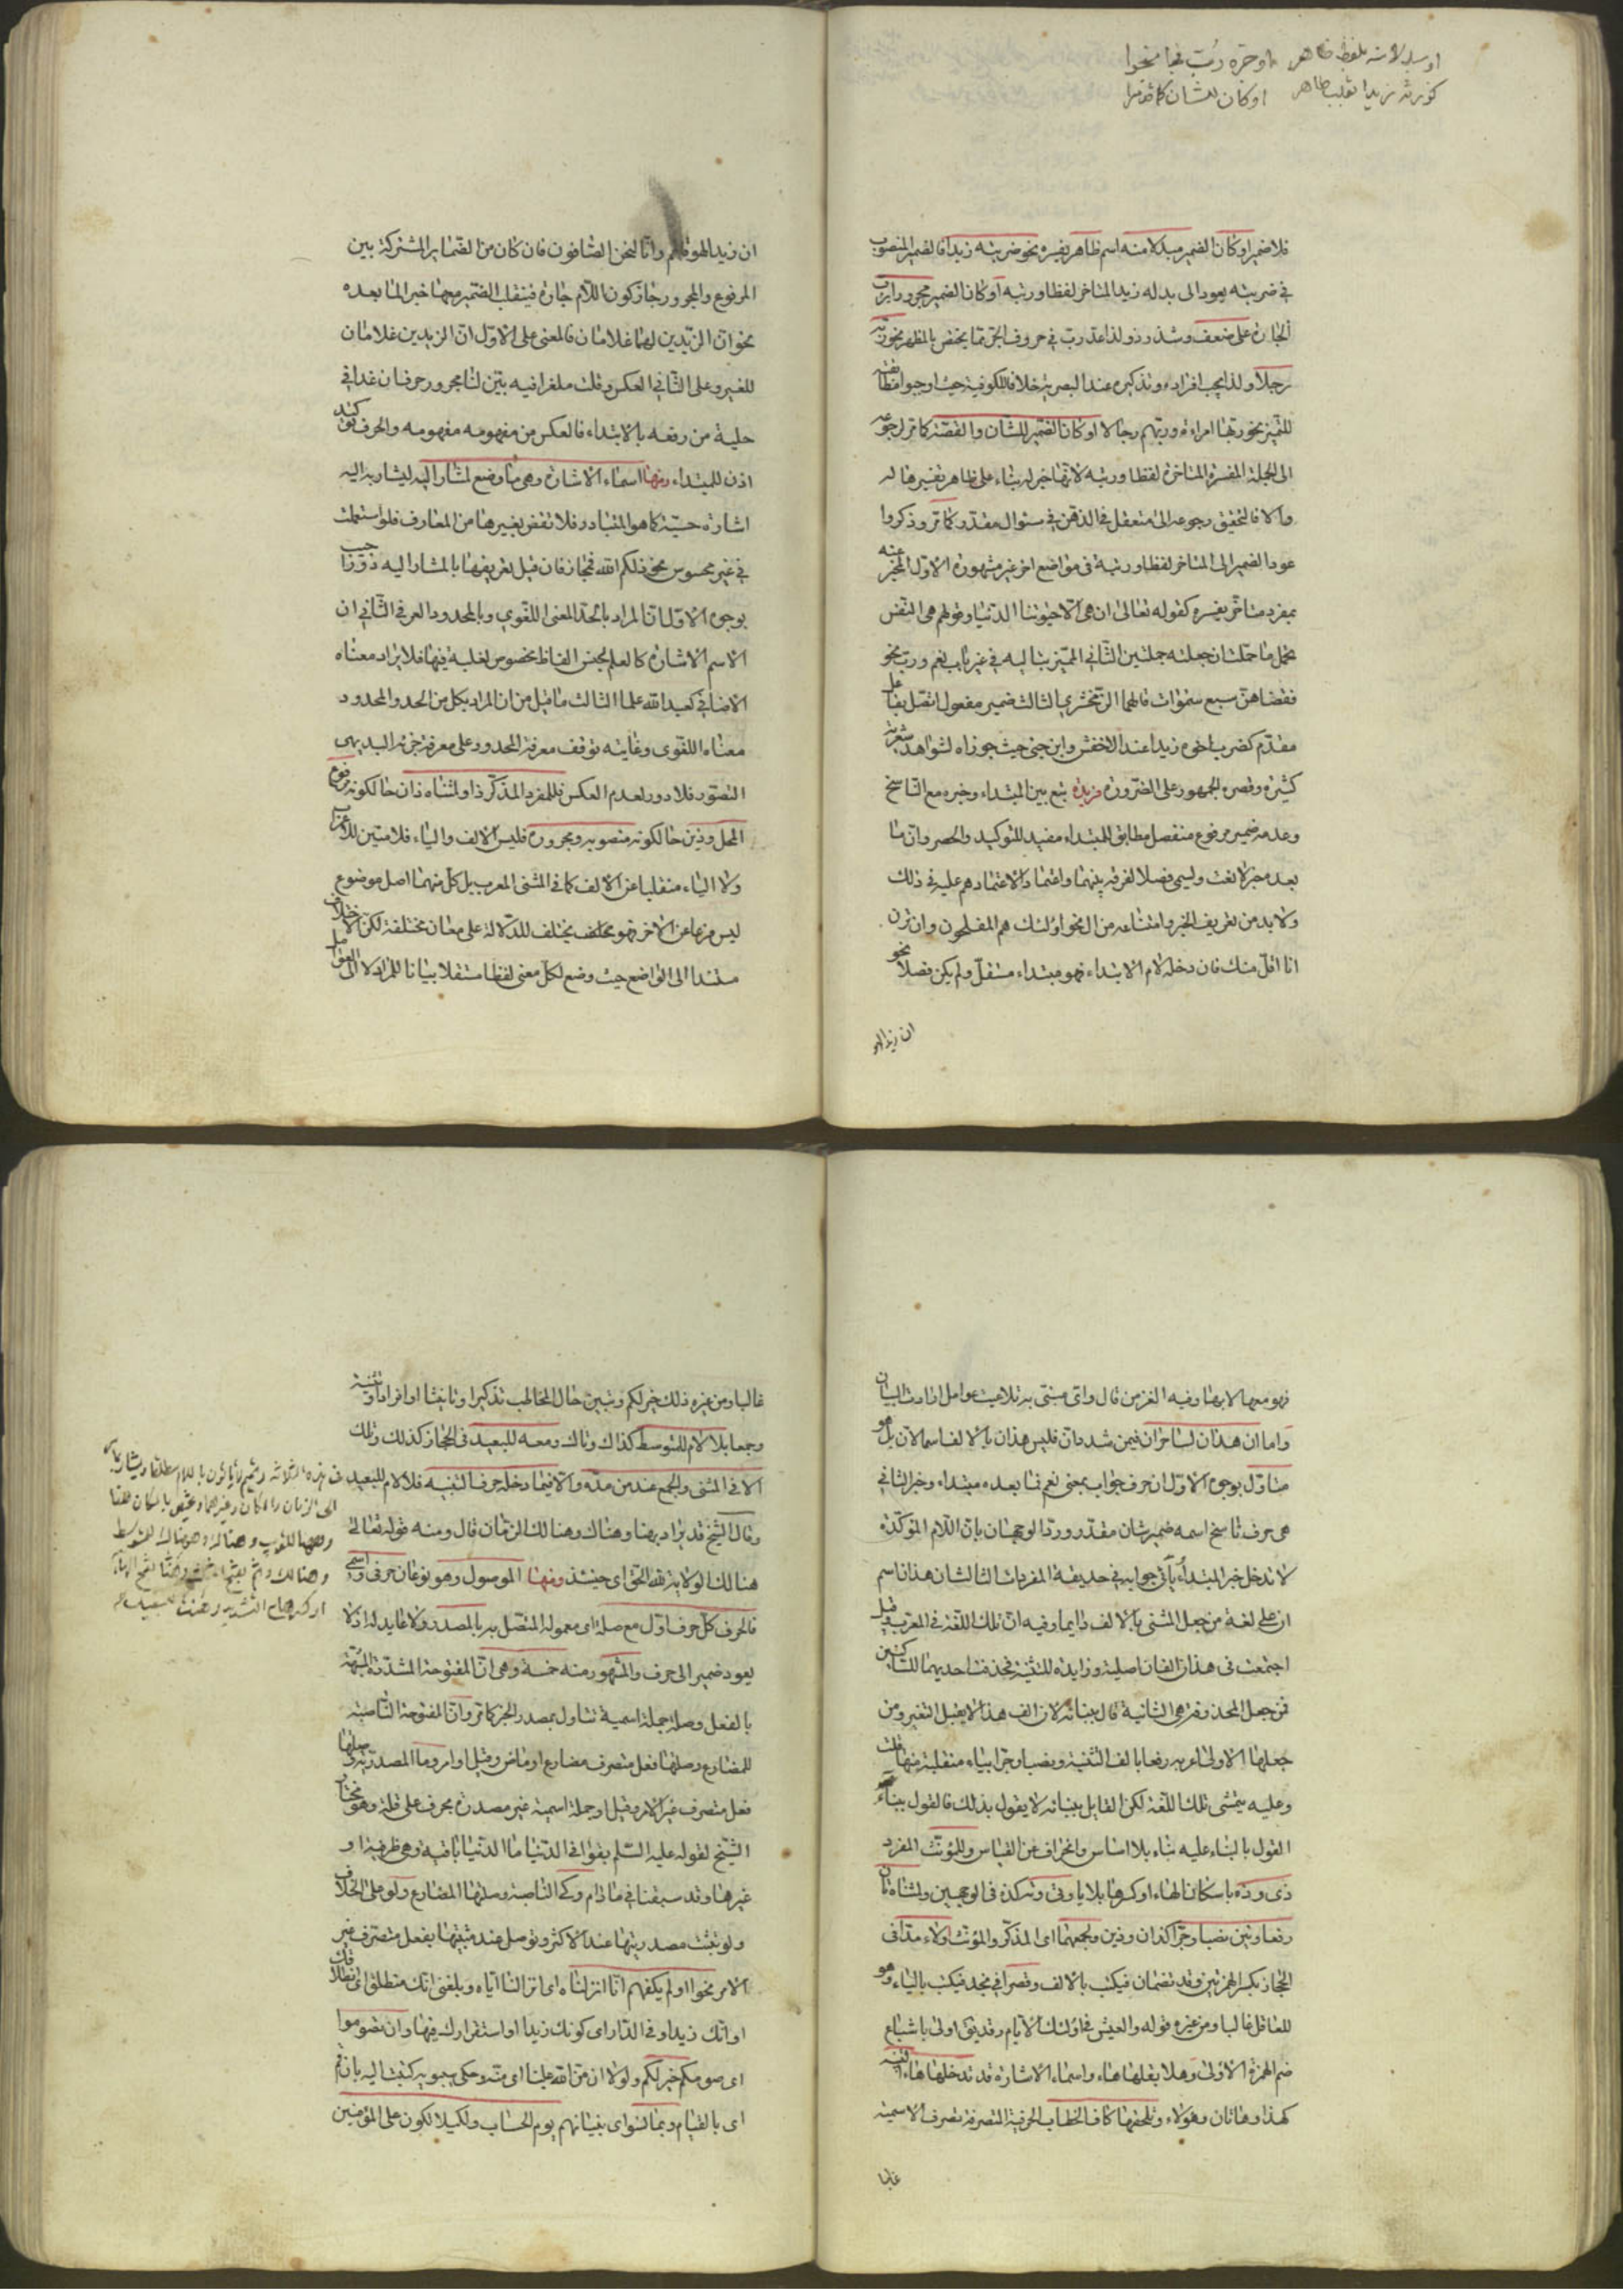 او يبدل لاسم بلفظ ظاهر او جره رب فجا نحوا
كزرته زيدا تغلب ظاهر او كان للشان كما قدما
فلا ضير او كان الضمير مبدلا منه اسم ظاهر يفسره نحو ضربته زيدا فالضمير المنصوب
في ضربته يعود الى بدله زيد المتاخر لفظا ورتبه او كان الضمير مجرورا برب
الجارة على ضعف وشذوذ ولذا عد رب في حروف الجر مما يختص بالمظهر نحو ربه
رجلا ولذا يجب افراده وتذكيره عند البصرية خلافا للكوفية حيث اوجبوا مطابقته
للتميز نحو ربها امراءة وربهم رجالا او كان الضمير للشان والقصة كما مر لرجوعه
الى الجملة المفسرة المتاخرة لفظا ورتبه لانها خبر له بناء على ظاهر تفسيرها له
والا فالتحقيق رجوعه الى متعقل في الذهن في سئوال مقدر كما مر وذكروا
عود الضمير الى المتاخر لفظا ورتبة في مواضع اخر غير مشهورة الاول المخبر عنه
بمفرد متاخر يفسره كقوله تعالى ان هى الا حيوتنا الدنيا وقولهم هى النفس
تحمل ما حملت ان جعلته جملتين الثاني المميز بتاليه في غير باب نعم ورب نحو
فقضاهن سبع سموات قالهما الزمخشري الثالث ضمير مفعول اتصل بفاعل
مقدم كضرب اخوه زيدا عند الاخفش وابن جنى حيث جوزاه لشواهد شعرية
كثيرة وقصره الجمهور على الضرورة فريدة يقع بين المبتداء وخبره مع الناسخ
وعدمه ضمير مرفوع منفصل مطابق للمبتداء مفيد للتوكيد والحصر وان ما
بعده خبر لا نعت وليسمى فصلا لفرقه بينهما واعتمادا لاعتمادهم عليه في ذلك
ولا بد من تعريف الخبر وامتناعه من ال نحو اولئك هم المفلحون وان ترن
انا اقل منك فان دخله لام الابتداء فهو مبتداء مستقل ولم يكن فصلا نحو
ان زيدا لهو
ان زيدا لهو قائم وانا لنحن الصافون فان كان من الضماير المشتركة بين
المرفوع والمجرور جاز كون اللام جارة فينقلب الضمير معها خبر الما بعده
نحو ان الزيدين لهما غلامان فالمعنى على الاول ان الزيدين غلامان
للغير وعلى الثاني العكس وقلت ملغزا فيه بين لنا مجرور حرف ان غدا في
حلية من رفعه بالابتداء فالعكس من مفهومه مفهومه والحرف توكيد
اذن للمبتداء ومنها اسماء الاشارة وهى ما وضع لمشار اليه ليشار به اليه
اشارة حسية كما هو المتبادر فلا نقض بغيرها من المعارف فلو استعملت
في غير محسوس نحو ذلكم الله فمجاز فان قيل تعريفها بالمشار اليه دور اجيب
بوجوه الاول ان المراد بالحد المعنى اللغوي وبالمحدود العرفي الثاني ان
الاسم الاشارة كالعلم لجنس الفاظ مخصوص لغلبه فيها فلا يراد معناه
الاضافي كعبد الله علما الثالث ما قيل من ان المراد بكل من الحد والمحدود
معناه اللغوى وغايته توقف معرفة المحدود على معرفة جزئه البديهى
التصور فلا دور لعدم العكس فللمفرد المذكر ذا ولمثناه ذان حالكونه مرفوع
المحل وذين حالكونه منصوبه ومجروره فليس الالف والياء فلامتين للاعراب
ولا الياء منقلبا عن الالف كما في المثنى المعرب بل كل منهما اصل موضوع
ليس فرعا عن الاخر فهو مختلف يختلف للدلالة على معان مختلفة لكن الاختلاف
مستندا الى الواضع حيث وضع لكل معنى لفظا مستقلا بيانا للمراد لا الى العوامل
فهو معها لا بها وفيه الغز من قال واى مبنى به تلاعبت عوامل ارادت البيان
واما ان هذان لساحران فيمن شدد ان فليس هذان بالالف اسما لان بل هو
متاول بوجوه الاول ان حرف جواب بمعنى نعم فما بعده مبتداء وخبر الثاني
هى حرف ناسخ اسمه ضمير شان مقدر ورد الوجهان بان اللام المؤكدة
لا تدخل خبر المبتداء يأتى جوابه في حديقة المفردات الثالث ان هذان اسم
ان على لغة من جعل المثنى بالالف دايما وفيه ان تلك اللغة في المعرب وقيل
اجتمعت في هذان الفان اصلية وزايدة للتثنية فحذفت احديهما للساكنين
فمن جعل المحذوفة هى الثانية قال ببنائه لان الف هذا لا يقبل التغير ومن
جعلها الاولى اعربه رفعا بالف التثنية ونصبا وجرا بياء منقلبة منها قلت
وعليه يتمشى تلك اللغة لكن القايل ببنائه لا يقول بذلك فالقول ببناء
القول بالبناء عليه بناء بلا اساس وانحراف عن القياس وللمؤنث المفرد
ذى وذه باسكان الهاء او كسرها بلا يا وتى وته كذه في الوجهين ولمثناه تان
رفعا وتين نصبا وجرا كذان وذين ولجمعهما اى المذكر والمؤنث اولاء مدا في
الحجاز بكسر الهمزتين وقد تضمان فيكتب بالالف وقصرا في نجد فيكتب بالياء وهو
للعاقل غالبا ومن غيره قوله والعيش بعد اولئك الايام وقد يق اولى باشباع
ضم الهمزة الاولى وهلا بقلبها هاء واسماء الاشارة قد تدخلها هاء التنبيه
كهذا وهاتان وهؤلاء وتلحقها كاف الخطاب الحرفية المتصرفة تصرف الاسمية
غالبا
غالبا ومن غيره ذلك خير لكم وتبين حال المخاطب تذكيرا وتانيثا او افرادا وتثنية
وجمعا بلا لام للمتوسط كذاك وتاك ومعه للبعيد في الحجاز كذلك وتلك
الا في المثنى والجمع عند من مده والا فيما دخله حرف التنبيه فلا لام للبعيد
وقال الشيخ قد يراد بهنا وهناك وهنالك الزمان قال ومنه قوله تعالى
هنالك الولاية لله الحق اى حينئذ ومنها الموصول وهو نوعان حرفى واسمى
فالحرف كل حرف اول مع صلة اى معموله المتصل به بالمصدر ولا عايد له اذ لا
يعود ضمير الى حرف والمشهور منه خمسة وهى ان المفتوحة المشددة المشبهة
بالفعل وصلة جملة اسمية تناول بمصدر الخبر كما مر وان المفتوحة الناصبة
للمضارع وصلتها فعل متصرف مضارع او ماض وقيل او امر وما المصدرية وصلتها
فعل متصرف غير الامر وقيل او جملة اسمية غير مصدرة بحرف على قلة وهو مختار
الشيخ لقوله عليه السلم بقوا في الدنيا ما الدنيا باقية وهى ظرفية او
غيرها وقد سبقنا في مادام وكى الناصبة وصلتها المضارع ولو على الخلاف
ولو تثبت مصدريتها عند الاكثر وتوصل عند مثبتها بفعل متصرف غير
الامر نحو او لم يكفهم انا انزلناه اى انزالنا اياه وبلغنى انك منطلق اى انطلاقك
او انك زيد او في الدار اى كونك زيدا او استقرارك فيها وان تصوموا
اى صومكم خير لكم ولولا ان من الله علينا اى منه وحكى سيبويه كتبت اليه بان قم
اى بالقيام وبما نسوا اى بنسيانهم يوم الحساب ولكيلا يكون على المؤمنين